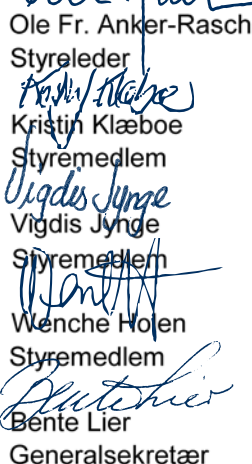 Ole Fr. Anker-Rasch
Styreleder
Kristin Klæboe
Kristin Klæboe
Styremedlem
Vigdis Jynge
Vigdis Jynge
Styremedlem
Wenche Holen
Styremedlem
Bente Lier
Bente Lier
Generalsekretær